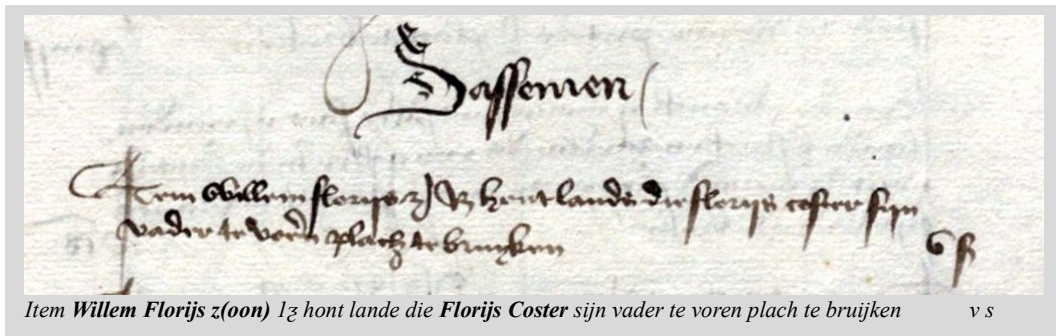 Sassemen
Item Willem florijs z) 1ʒ hont lande die florijs coster sijn
vader te voren plach te bruijken v s
Item Willem Florijs z(oon) 1ʒ hont lande die Florijs Coster sijn vader te voren plach te bruijken v s